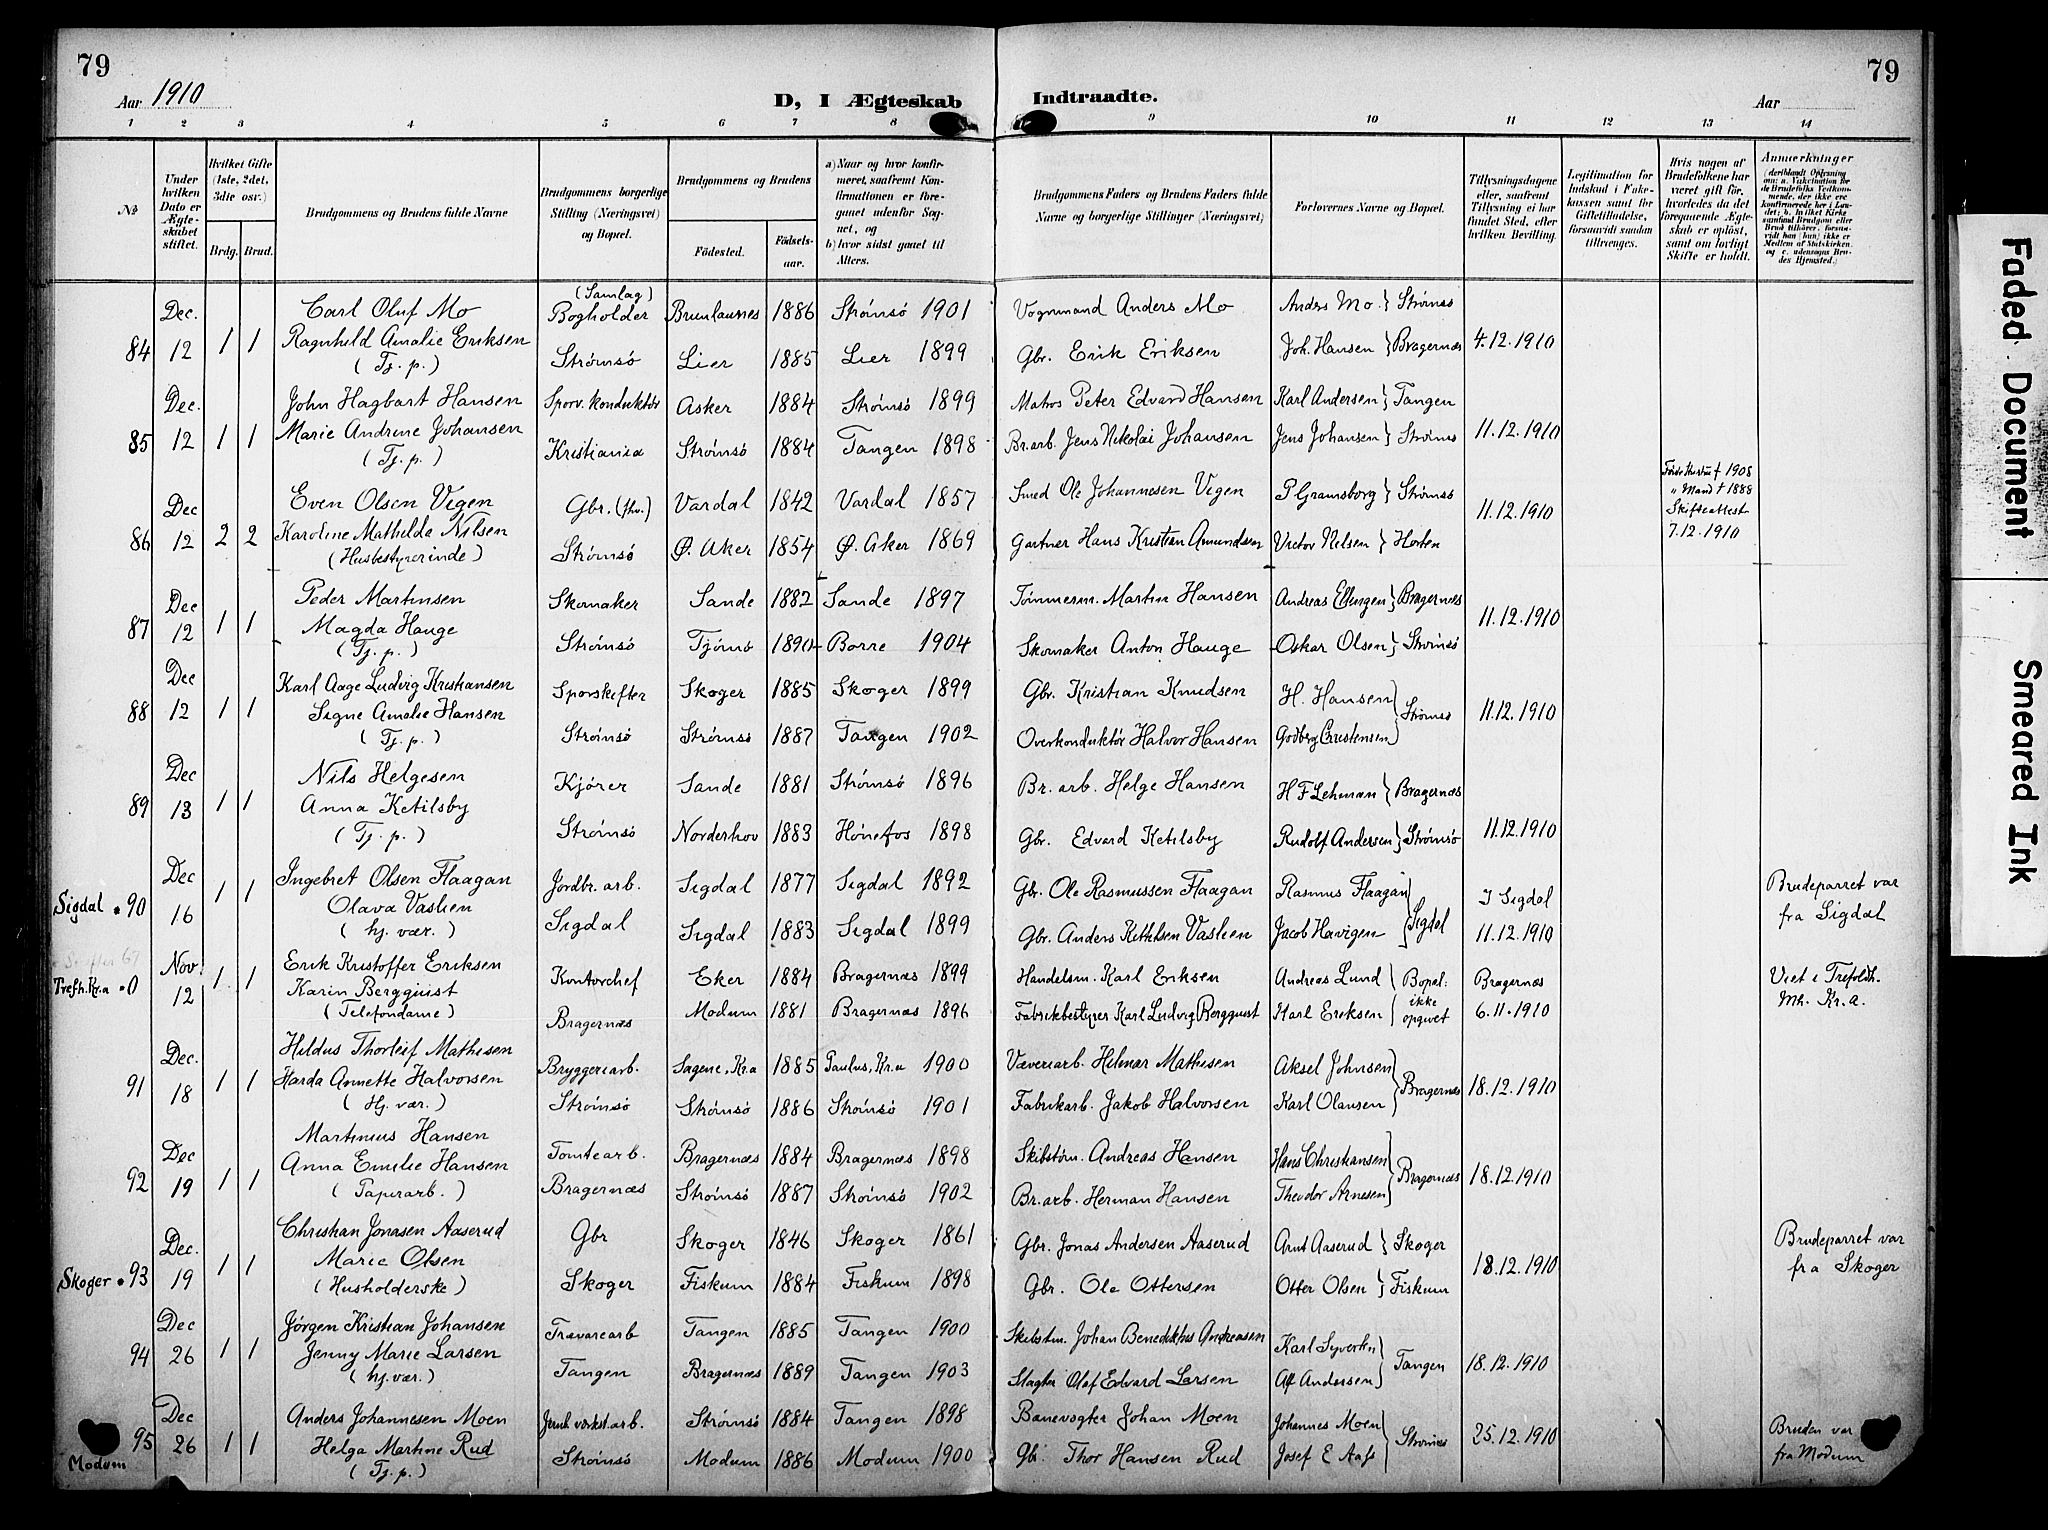 79
79
Aar 1910
D, I Ægteskab Indtraadte.
Aar
1 2 3 4 5 6 7 8 9 10 11 12 13 14
№
Under hvilken Dato er Ægteskabet stiftet.
Hvilket Gifte (1ste, 2det, 3die osv.)
Brdg. Brud.
Brudgommens og Brudens fulde Navne
Brudgommens borgerlige Stilling (Næringsvei) og Bopæl.
Brudgommens og Brudens
Fødested.
Fødselsaar.
a) Naar og hvor konfirmeret, saafremt Konfirmationen er foregaaet udenfor Sognet, og
b) hvor sidst gaaet til Alters.
Brudgommens Faders og Brudens Faders fulde Navne og borgerlige Stillinger (Næringsvei)
Forlovernes Navne og Bopæl.
Tillysningsdagene eller, saafremt Tillysning ei har fundet Sted, efter hvilken Bevilling.
Legitimation for Indskud i Enkekassen samt for Giftetilladelse, forsaavidt saadan tiltrænges.
Hvis nogen af Brudefolkene har været gift før, hvorledes da det foregaaende Ægteskab er opløst, samt om lovligt Skifte er holdt.
Anmærkninger
(deriblandt Oplysning om: a. Vakcination for de Brudefolks Vedkommende, der ikke ere konfirmerede her i Landet; b. hvilket Kirkesamfund Brudgom eller Brud tilhører, forsaavidt han (hun) ikke er Medlem af Statskirken, og c. udensogns Brudes Hjemsted.)
84 Dec. 12 1 1 Carl Oluf Mo (Samlag) Bogholder Brunlaunes 1886 Strømsö 1901 Vognmand Anders Mo Anders Mo } Strømsö
Ragnhild Amalie Eriksen (Tj. p.) Strømsö Lier 1885 Lier 1899 Gbr. Erik Eriksen Joh. Hansen } Bragernæs 4.12.1910
85 Dec. 12 1 1 John Hagbart Hansen Sporv. konduktör Asker 1884 Strømsö 1899 Matros Peter Edvard Hansen Karl Andersen } Tangen
Marie Andrine Johansen (Tj. p.) Kristiania Strømsö 1884 Tangen 1898 Br. arb. Jens Nikolai Johansen Jens Johansen } Strömsö 11.12.1910
86 Dec 12 2 2 Even Olsen Vegen Gbr. (fhv.) Vardal 1842 Vardal 1857 Smed Ole Johannesen Vegen P Gramsborg } Strømsö
Karoline Mathilde Nilsen (Husbestyrerinde) Strømsö Ø. Aker 1854 Ø. Aker 1869 Gartner Hans Kristian Amundsen Victor Nilsen } Horten 11.12.1910
Første Hustru † 1908
" Mand † 1888
Skifteattest
7.12.1910
87 Dec 12 1 1 Peder Martinsen Skomaker Sande 1882 Sande 1897 Tømmerm. Martin Hansen Andreas Ellingen } Bragernæs
Magda Hauge (Tj. p.) Strømsö Tjømö 1890 Borre 1904 Skomaker Anton Hauge Oskar Olsen } Strömsö 11.12.1910
88 Dec 12 1 1 Karl Aage Ludvig Kristiansen Sporskifter Skoger 1885 Skoger 1899 Gbr. Kristian Knudsen H. Hansen
Signe Amalie Hansen (Tj. p.) Strömsö Strömsö 1887 Tangen 1902 Overkonduktör Halvor Hansen Godberg Christensen } Strömsö 11.12.1910
89 Dec 13 1 1 Nils Helgesen Kjører Sande 1881 Strömsö 1896 Br. arb. Helge Hansen H F Lehmann } Bragernæs
Anna Ketilsby (Tj. p.) Strömsö Norderhov 1883 Hönefos 1898 Gbr. Edvard Ketilsby Rudolf Andersen } Strömsö 11.12.1910
Sigdal • 90 Dec 16 1 1 Ingebret Olsen Flaagan Jordbr. arb. Sigdal 1877 Sigdal 1892 Gbr. Ole Rasmussen Flaagan Rasmus Flaagan I Sigdal Brudeparret var
Olava Vaslien (hj. vær.) Sigdal Sigdal 1883 Sigdal 1899 Gbr. Anders Kittilsen Vaslien Jacob Havigen } Sigdal 11.12.1910 fra Sigdal
Trefh. Kr.a • 0 Nov. 12 1 1 Erik Kristoffer Eriksen Kontorchef Eker 1884 Bragernæs 1899 Handelsm. Karl Eriksen Andreas Lund Bragernæs Viet i Trefoldh.
Karin Bergquist (Telefondame) Bragernæs Modum 1881 Bragernæs 1896 Fabrikbestyrer Karl Ludvig Bergquist Karl Eriksen { Bopæl: ikke opgivet 6.11.1910 Mh. Kr. a.
91 Dec. 18 1 1 Hildus Thorleif Mathisen Bryggeriarb. Sagene, Kr.a 1885 Paulus, Kr.a 1900 Væveriarb. Hilmar Mathisen Aksel Johnsen
Harda Annette Halvorsen (Hj. vær.) Strömsö Strömsö 1886 Strömsö 1901 Fabrikarb. Jakob Halvorsen Karl Olausen } Bragernæs 18.12.1910
92 Dec 19 1 1 Martinius Hansen Tomtearb. Bragernæs 1884 Bragernæs 1898 Skibstöm. Andreas Hansen Hans Christiansen
Anna Emilie Hansen (Papirarb.) Bragernæs Strömsö 1887 Strömsö 1902 Br. arb. Herman Hansen Theodor Arnesen } Bragernæs 18.12.1910
Skoger • 93 Dec. 19 1 1 Christian Jonasen Aaserud Gbr Skoger 1846 Skoger 1861 Gbr. Jonas Andersen Aaserud Arnt Aaserud } Skoger Brudeparret var
Marie Olsen (Husholderske) Skoger Fiskum 1884 Fiskum 1898 Gbr. Ole Ottersen Otter Olsen } Fiskum 18.12.1910 fra Skoger
94 Dec 26 1 1 Jørgen Kristian Johansen Trævarearb Tangen 1885 Tangen 1900 Skibstm. Johan Benediktus Andreasen Karl Syverts
Jenny Marie Larsen (hj. vær.) Tangen Bragernæs 1889 Tangen 1903 Slagter Olaf Edvard Larsen Alf Andersen } Tangen 18.12.1910
95 Modum Dec 26 1 1 Anders Johannesen Moen Jernb. værkst. arb. Strömsö 1884 Tangen 1898 Banevogter Johan Moen Johannes Moen Bruden var
Helga Martine Rud (Tj. p.) Strömsö Modum 1886 Modum 1900 Gbr. Thor Hansen Rud Josef E Aass } Strömsö 25.12.1910 fra Modum
Faded Document
Smeared Ink